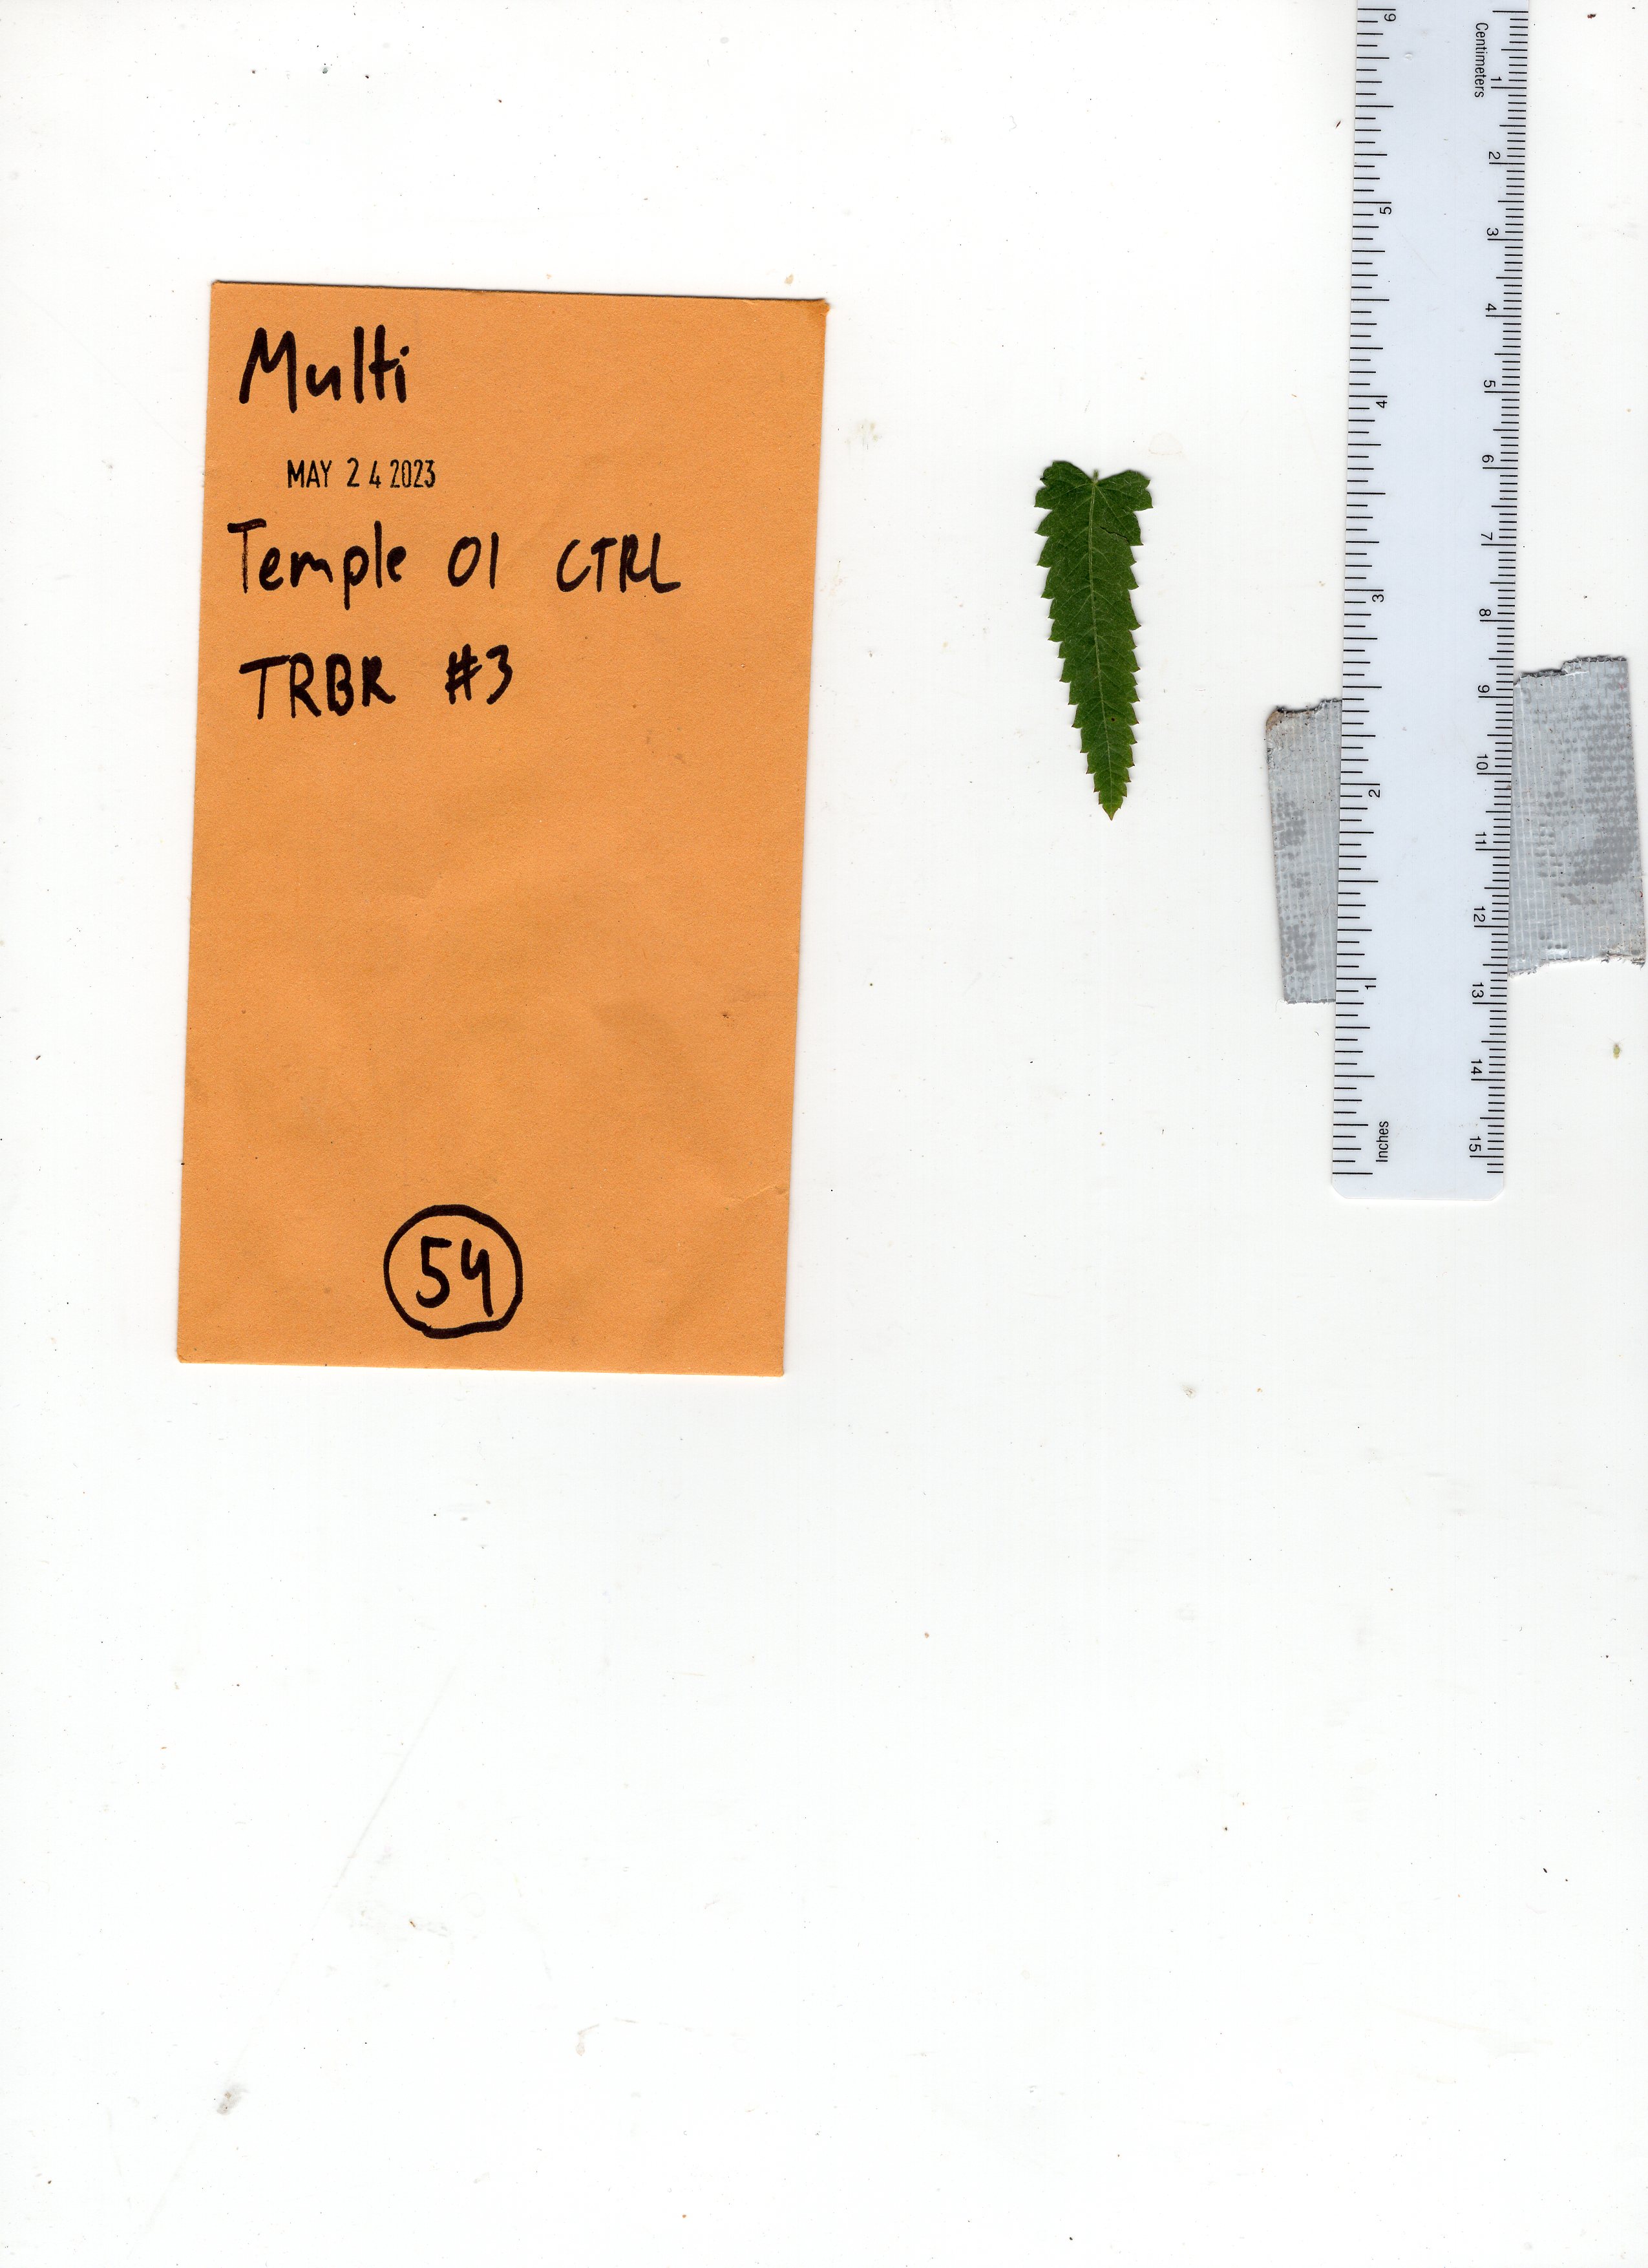 Multi
MAY 24 2023
Temple 01 CTRL
TRBR #3
54
Centimeters
1
2
3
4
5
6
7
8
9
10
11
12
13
14
15
6
5
4
3
2
1
Inches